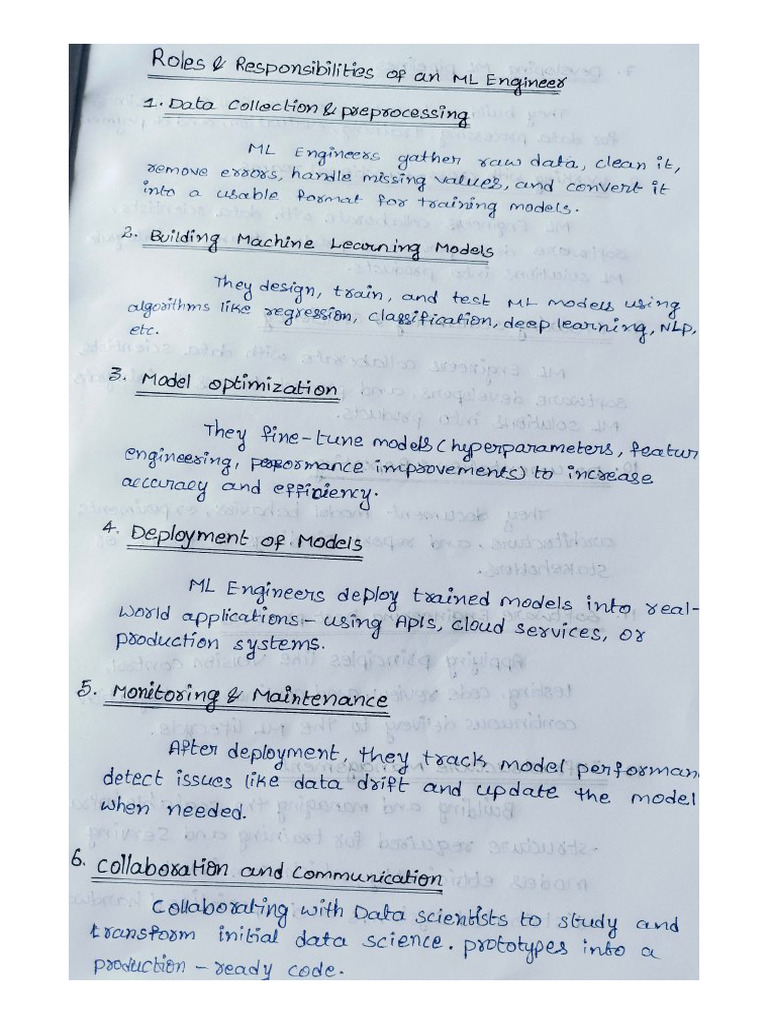 Roles & Responsibilities of an ML Engineer
1. Data Collection & preprocessing
ML Engineers gather raw data, clean it,
remove errors, handle missing values, and convert it
into a usable format for training models.
2. Building Machine Learning Models
They design, train, and test ML models using
algorithms like regression, classification, deep learning, NLP,
etc.
3. Model optimization
They fine-tune models (hyperparameters, featur
engineering, performance improvements) to increase
accuracy and efficiency.
4. Deployment of Models
ML Engineers deploy trained models into real-
world applications - using APIs, cloud services, or
production systems.
5. Monitoring & Maintenance
After deployment, they track model performan
detect issues like data drift and update the model
when needed.
6. Collaboration and Communication
Collaborating with Data scientists to study and
transform initial data science. prototypes into a
production - ready code.